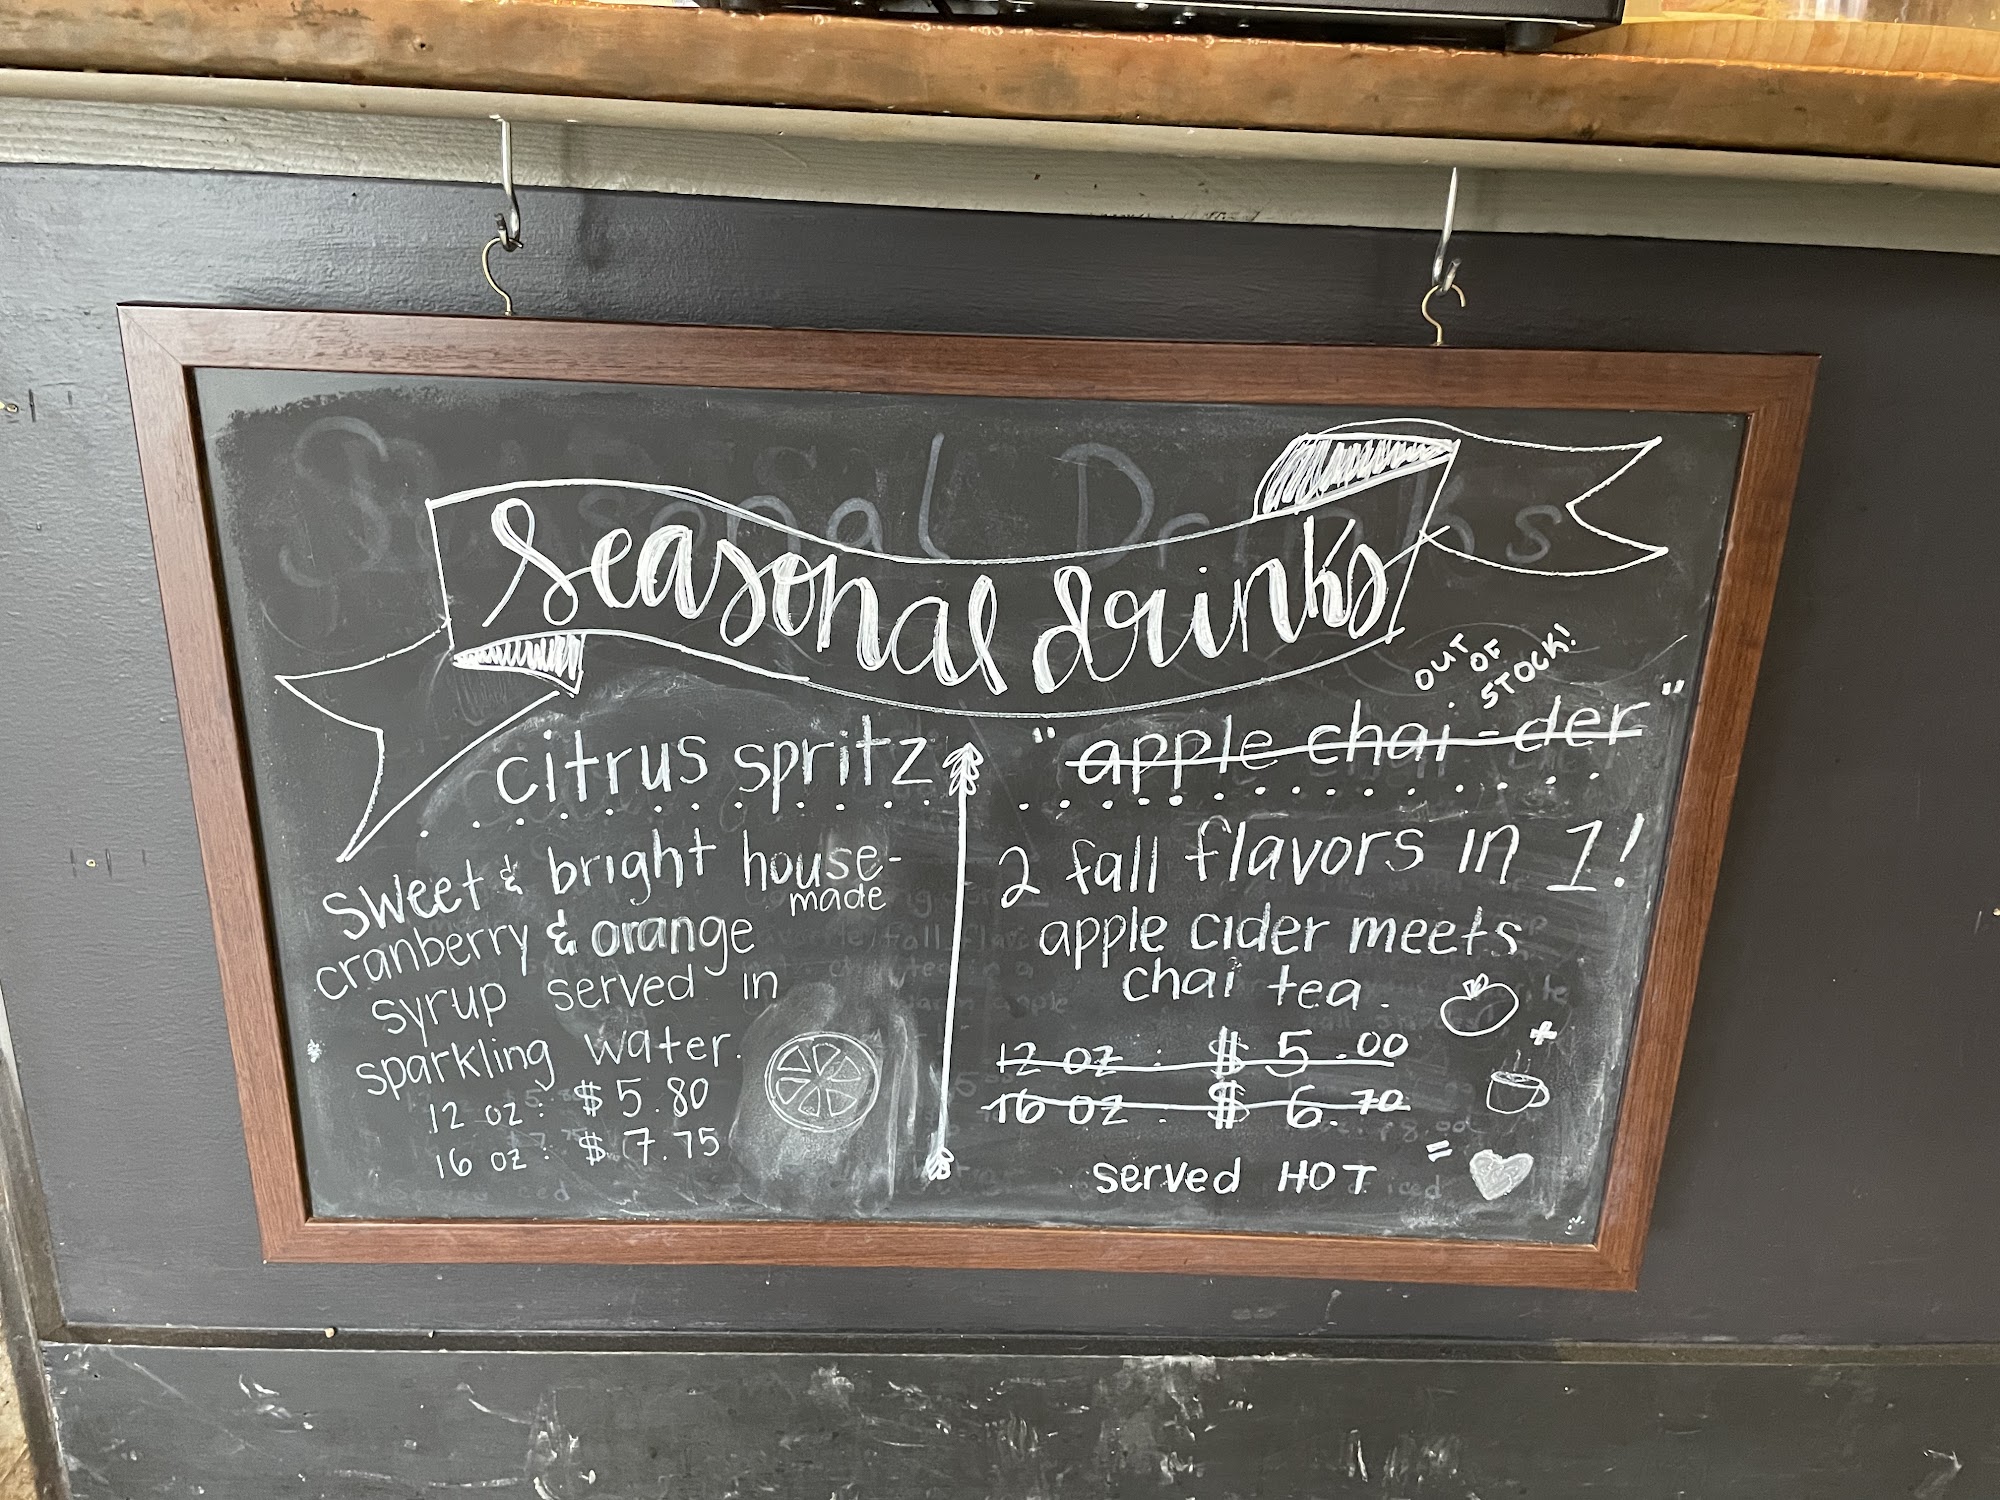 seasonal drinks
citrus spritz
sweet & bright house-
made
cranberry & orange
syrup served in
sparkling water.
12 oz : $ 5.80
16 oz : $ 7.75
OUT
OF
STOCK!
"apple chai-der"
2 fall flavors in 1!
apple cider meets
chai tea.
12 oz : $ 5.00
16 oz : $ 6.70
+
=
served HOT
Seasonal Drinks